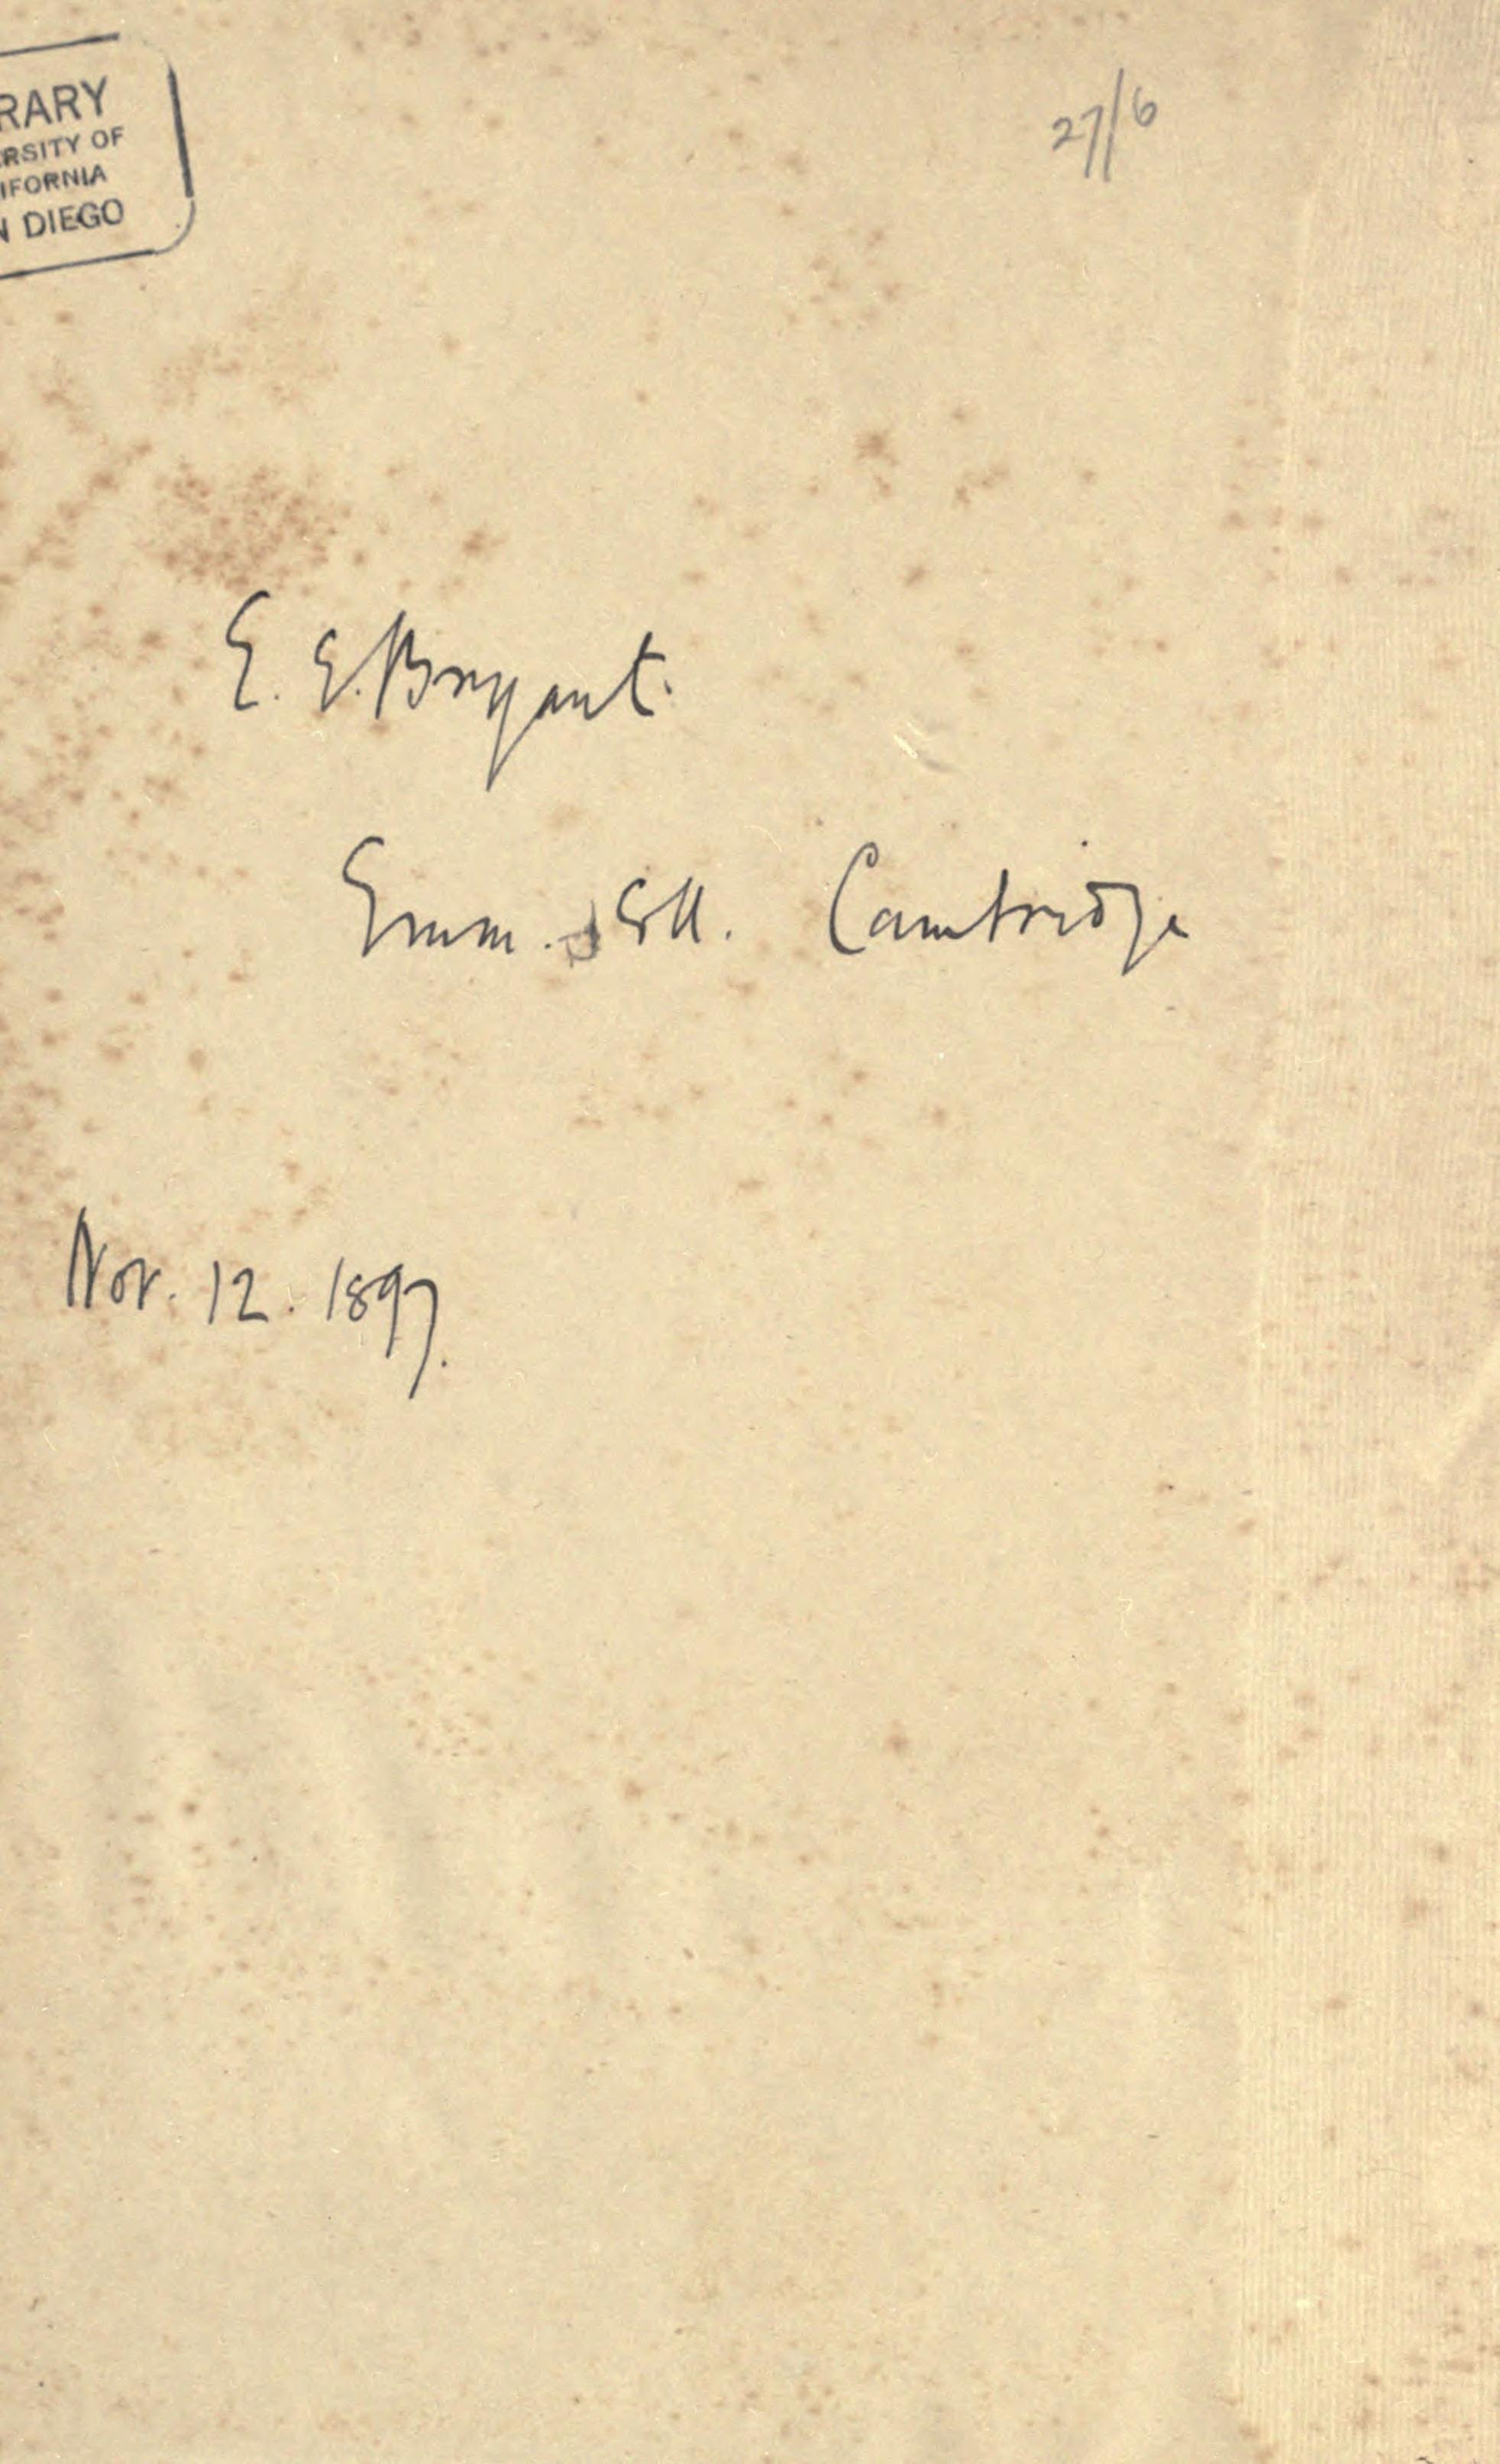 RARY
RSITY OF
IFORNIA
N DIEGO
27/6
E. E. Bryant.
Emm. Coll. Cambridge
Nov. 12. 1897.